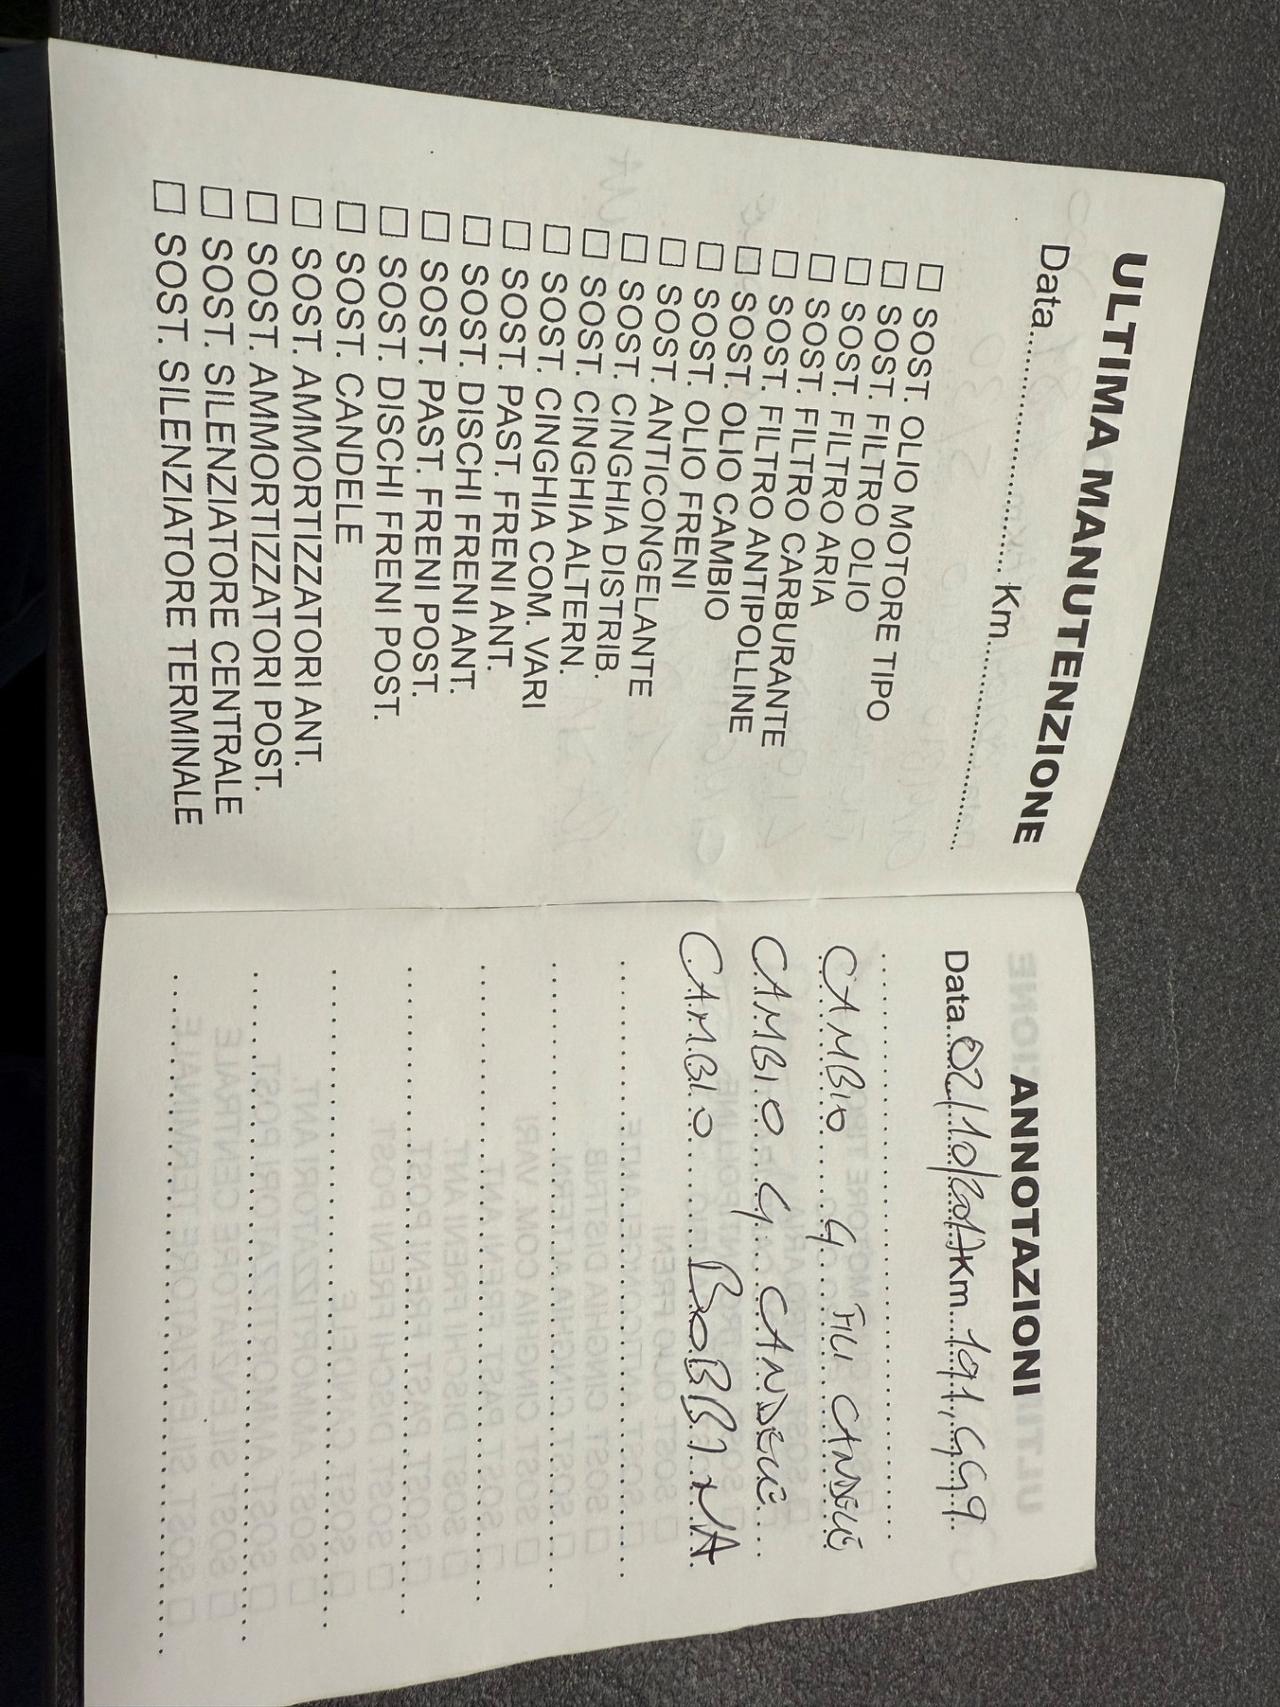 ULTIMA MANUTENZIONE
Data.................... Km....................
□ SOST. OLIO MOTORE TIPO
□ SOST. FILTRO OLIO
□ SOST. FILTRO ARIA
□ SOST. FILTRO CARBURANTE
□ SOST. FILTRO ANTIPOLLINE
□ SOST. OLIO CAMBIO
□ SOST. OLIO FRENI
□ SOST. ANTICONGELANTE
□ SOST. CINGHIA DISTRIB.
□ SOST. CINGHIA ALTERN.
□ SOST. CINGHIA COM. VARI
□ SOST. PAST. FRENI ANT.
□ SOST. DISCHI FRENI ANT.
□ SOST. PAST. FRENI POST.
□ SOST. DISCHI FRENI POST.
□ SOST. CANDELE
□ SOST. AMMORTIZZATORI ANT.
□ SOST. AMMORTIZZATORI POST.
□ SOST. SILENZIATORE CENTRALE
□ SOST. SILENZIATORE TERMINALE
ANNOTAZIONI
Data 02/10/2017 Km
CAMBIO 4 FILI CANDELE
CAMBIO 4 CANDELE
CAMBIO BOBBINA